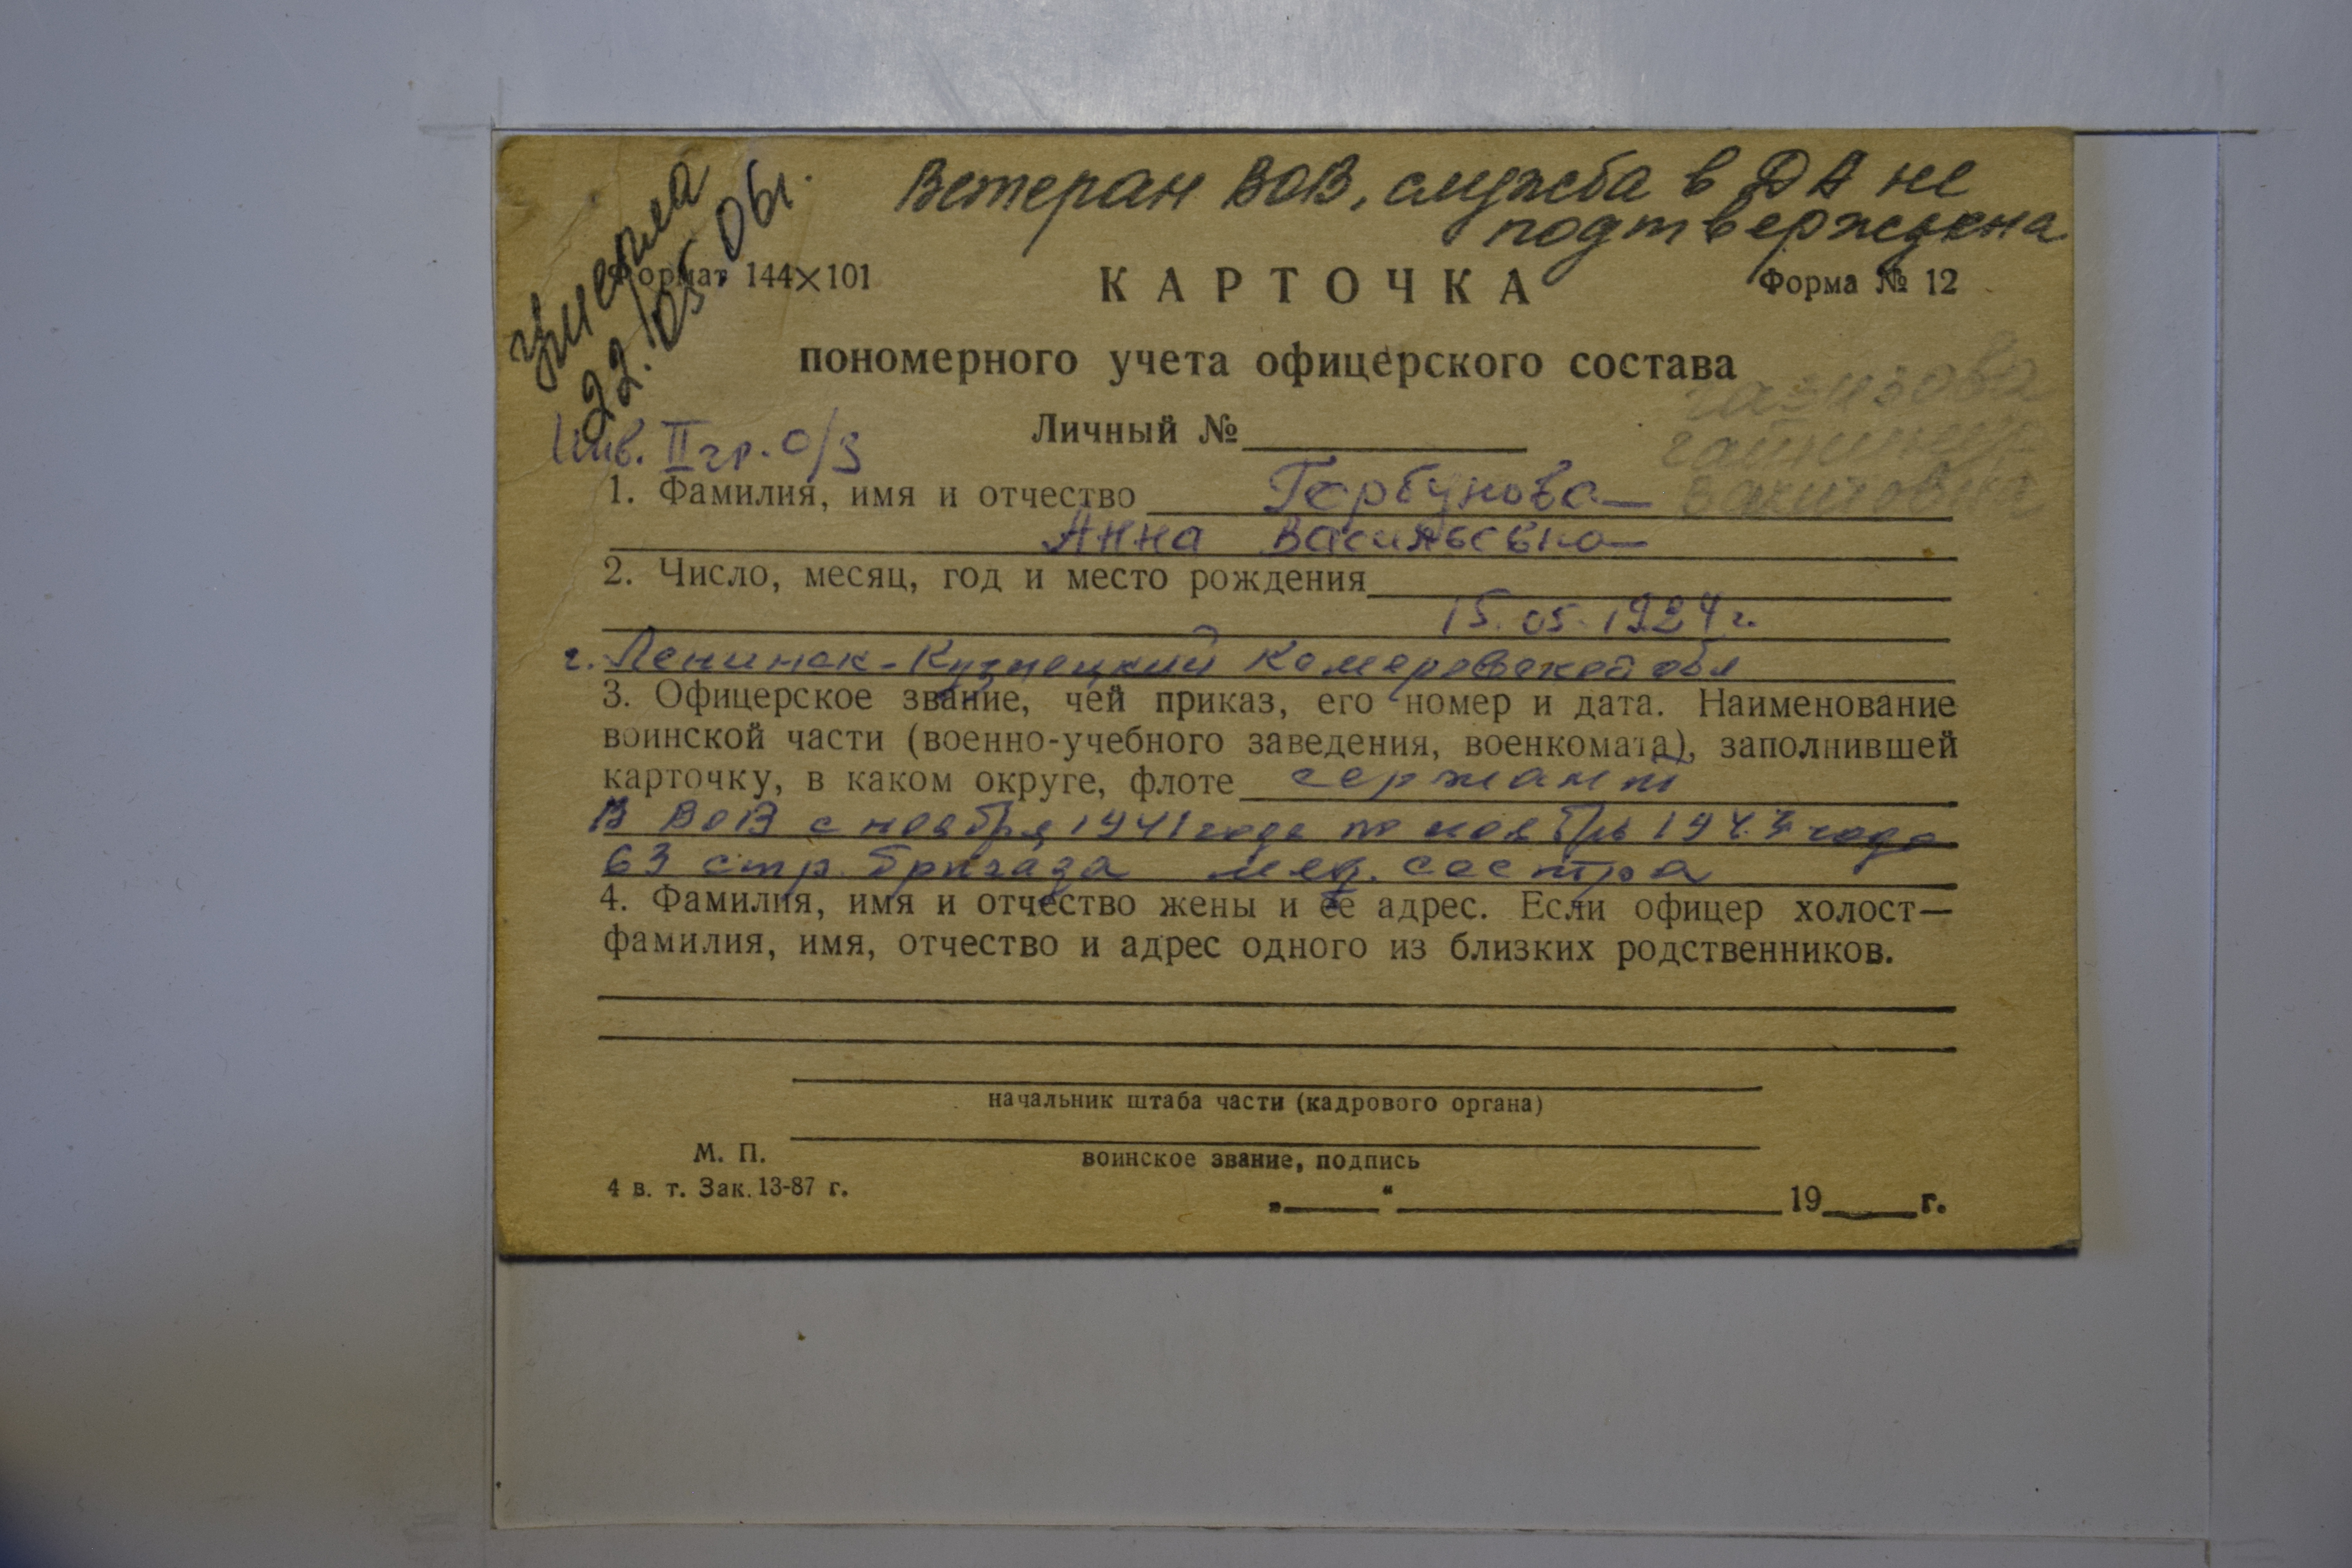 Ветеран ВОВ, служба в ДА не
подтверждена
умерла
22.05.06г.
Формат 144×101
КАРТОЧКА
Форма № 12
пономерного учета офицерского состава
Газизова
Инв. II гр. о/з
Личный №
1. Фамилия, имя и отчество Горбунова
Анна Васильевна
2. Число, месяц, год и место рождения
15.05.1924г.
г. Ленинск-Кузнецкий Кемеровской обл
3. Офицерское звание, чей приказ, его номер и дата. Наименование
воинской части (военно-учебного заведения, военкомата), заполнившей
карточку, в каком округе, флоте сержант
В ВОВ с ноября 1941 года по ноябрь 1943 года
63 стр. бригада мед. сестра
4. Фамилия, имя и отчество жены и её адрес. Если офицер холост—
фамилия, имя, отчество и адрес одного из близких родственников.
начальник штаба части (кадрового органа)
М. П.
воинское звание, подпись
4 в. т. Зак. 13-87 г.
„ “ 19 г.